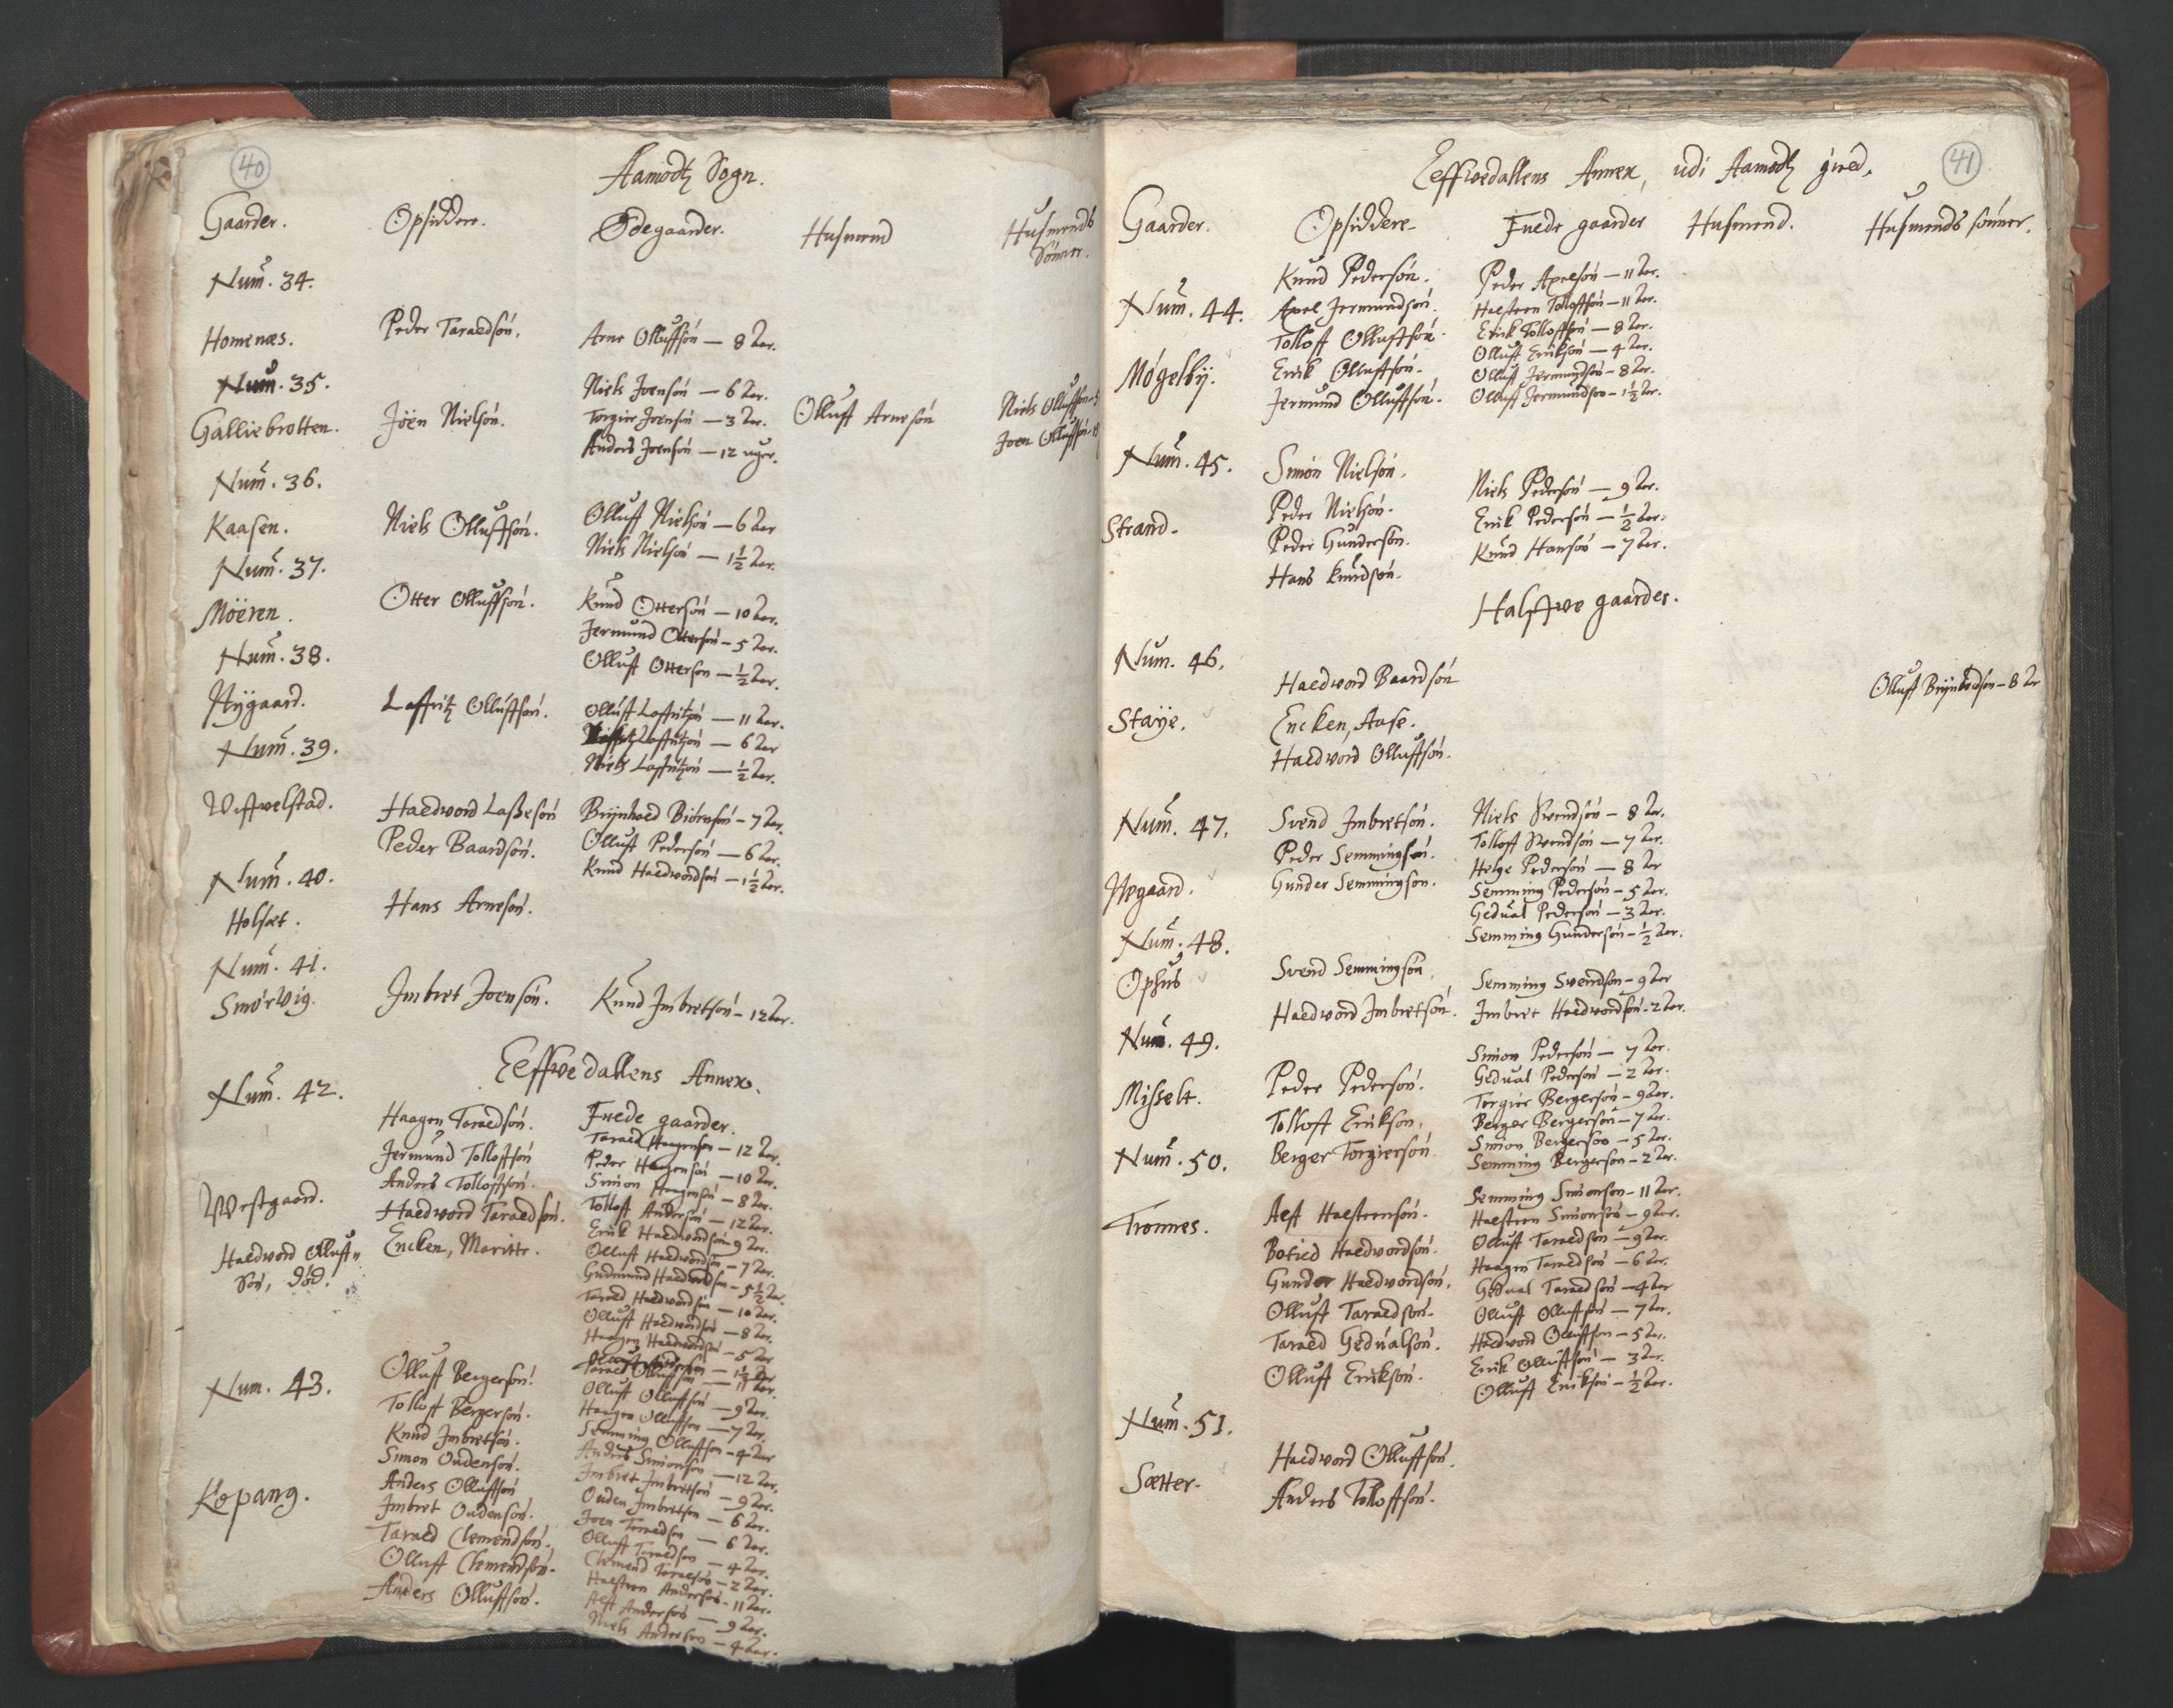 40
Aamodtz Sogn.
Gaarder. Opsiddere. Ødegaarder. Husmend Husmends Sönner.
Num. 34.
Homenæs. Peder Taraldsön. Arne Olluffsön — 8 Aar.
Num. 35.
Galliebrotten. Jöen Nielsön. Niels Joensön — 6 Aar. Olluff Arnesön Niels Olluffsön
Torgier Joensön — 3 Aar. Joen Olluffsön
Anders Joensön — 12 uger.
Num. 36.
Kaasen. Niels Olluffsön. Olluff Nielsön — 6 Aar
Niels Nielsön — 1½ Aar.
Num. 37.
Möeren. Otter Olluffsön. Knud Ottersön — 10 Aar.
Jermund Ottersön — 5 Aar.
Olluff Otterson — ½ Aar.
Num. 38.
Nÿgaard. Laffritz Olluffsön. Olluff Laffritzön — 11 Aar.
Laffritzön — 6 Aar
Niels Laffritzön — ½ Aar.
Num. 39.
Wiffvelstad. Haedword Lasßesön Brÿnhoed Biörnsön — 7 Aar.
Peder Baardsön. Olluff Pedersön — 6 Aar.
Knud Haedwordsön — 1½ Aar.
Num. 40.
Holsæt. Hans Arnesön.
Num. 41.
Smörvig. Imbret Joensön. Knud Imbretsön — 12 Aar.
Eeffwedallens Annex.
Num. 42.
Westgaard. Haagen Taraedsön. Fuede gaarder.
Jermund Tolloffsön Taraed Haagensön — 12 Aar.
Anders Tolloffsön. Peder Haagensön — 10 Aar.
Haedword Taraedsön. Simon Haagensön — 8 Aar.
Encken, Maritte. Tolloff Andersön — 12 Aar.
Haedword Olluff- Erik Haedwordsön 9 Aar.
Sön, död. Olluff Haedwordsön — 7 Aar.
Gudmund Haedwordsön — 5½ Aar.
Taraed Haedwordsön — 10 Aar.
Olluff Haedwordsön — 8 Aar.
Haagen Haedwordsön — 5 Aar
— 1½ Aar
Num. 43.
Kopang. Olluff Bergersön. Taraed Olluffsön — 11 Aar.
Tolloff Bergersön. Olluff Olluffsön — 9 Aar.
Knud Imbretsön. Haagen Olluffsön — 7 Aar.
Simon Oudensön. Semming Olluffsön — 4 Aar
Anders Olluffsön Anders Simonsön — 12 Aar.
Imbret Oudensön. Imbret Imbretsön — 9 Aar.
Taraed Clemendsön. Ouden Imbretsön — 6 Aar.
Olluff Clemendsön. Joen Taraedsön — 6 Aar.
Anders Olluffsön. Olluff Taraedsön — 4 Aar.
Clemend Taraedsön — 2 Aar.
Haesteen Andersön — 11 Aar.
Aest Andersön — 9 Aar.
Niels Andersön — 4 Aar.
41
Eeffwedallens Annex, udi Aamodtz gield.
Gaarder. Opsiddere Fuede gaarder Husmend. Husmends sönner.
Num. 44.
Mögelbÿ. Knud Pedersön. Peder Axelsön — 11 Aar.
Axel Jermundsön. Haesteen Tolloffsön — 11 Aar.
Tolloff Olluffsön. Erick Tolloffsön — 8 Aar.
Erik Olluffsön. Olluff Eriksön — 4 Aar.
Jermund Olluffsön. Olluff Jermundsön — 8 Aar.
Olluff Jermundsön — 1½ Aar.
Num. 45.
Strand. Simön Nielsön.
Peder Nielsön. Niels Pedersön — 9 Aar.
Peder Gundersön. Erik Pedersön — ½ Aar.
Hans Knudsön. Knud Hansön — 7 Aar.
Halffwe gaarder.
Num. 46.
Staÿe. Haedword Baardsön Olluff Brÿnhoedsön — 8 Aar
Encken, Aase.
Haedword Olluffsön.
Num. 47.
Nogaard. Svend Imbretsön. Niels Svendsön — 8 Aar.
Peder Semmingsön. Tolloff Svendsön — 7 Aar.
Gunder Semmingson. Helge Pedersön — 8 Aar
Semming Pedersön — 5 Aar.
Gedual Pedersön — 3 Aar.
Semming Gundersön — ½ Aar.
Num. 48.
Ophus Svend Semmingsön Semming Svendsön — 9 Aar
Haedword Imbretsön. Imbret Haedwordsön — 2 Aar.
Num. 49.
Misselt. Peder Pedersön. Simon Pedersön — 7 Aar.
Tolloff Erikson. Gedual Pedersön — 2 Aar.
Berger Torgiersön. Torgier Bergersön — 9 Aar.
Berger Bergersön — 7 Aar.
Simon Bergerson — 5 Aar.
Semming Bergerson — 2 Aar.
Num. 50.
Tronnes. Aest Haesteensön. Semming Simonson — 11 Aar.
Botied Haedwordsön. Haesteen Simonsön — 9 Aar.
Gunder Haedwordsön. Olluff Taraedsön — 9 Aar.
Olluff Taraedsön. Haagen Taraedsön — 6 Aar.
Taraed Gedualsön. Gedual Taraedsön — 4 Aar
Olluff Eriksön. Olluff Olluffsön — 7 Aar.
Haedword Olluffsön — 5 Aar.
Erik Olluffsön — 3 Aar.
Olluff Eriksön — ½ Aar.
Num. 51.
Sætter. Haedword Olluffsön.
Anders Tolloffsön.